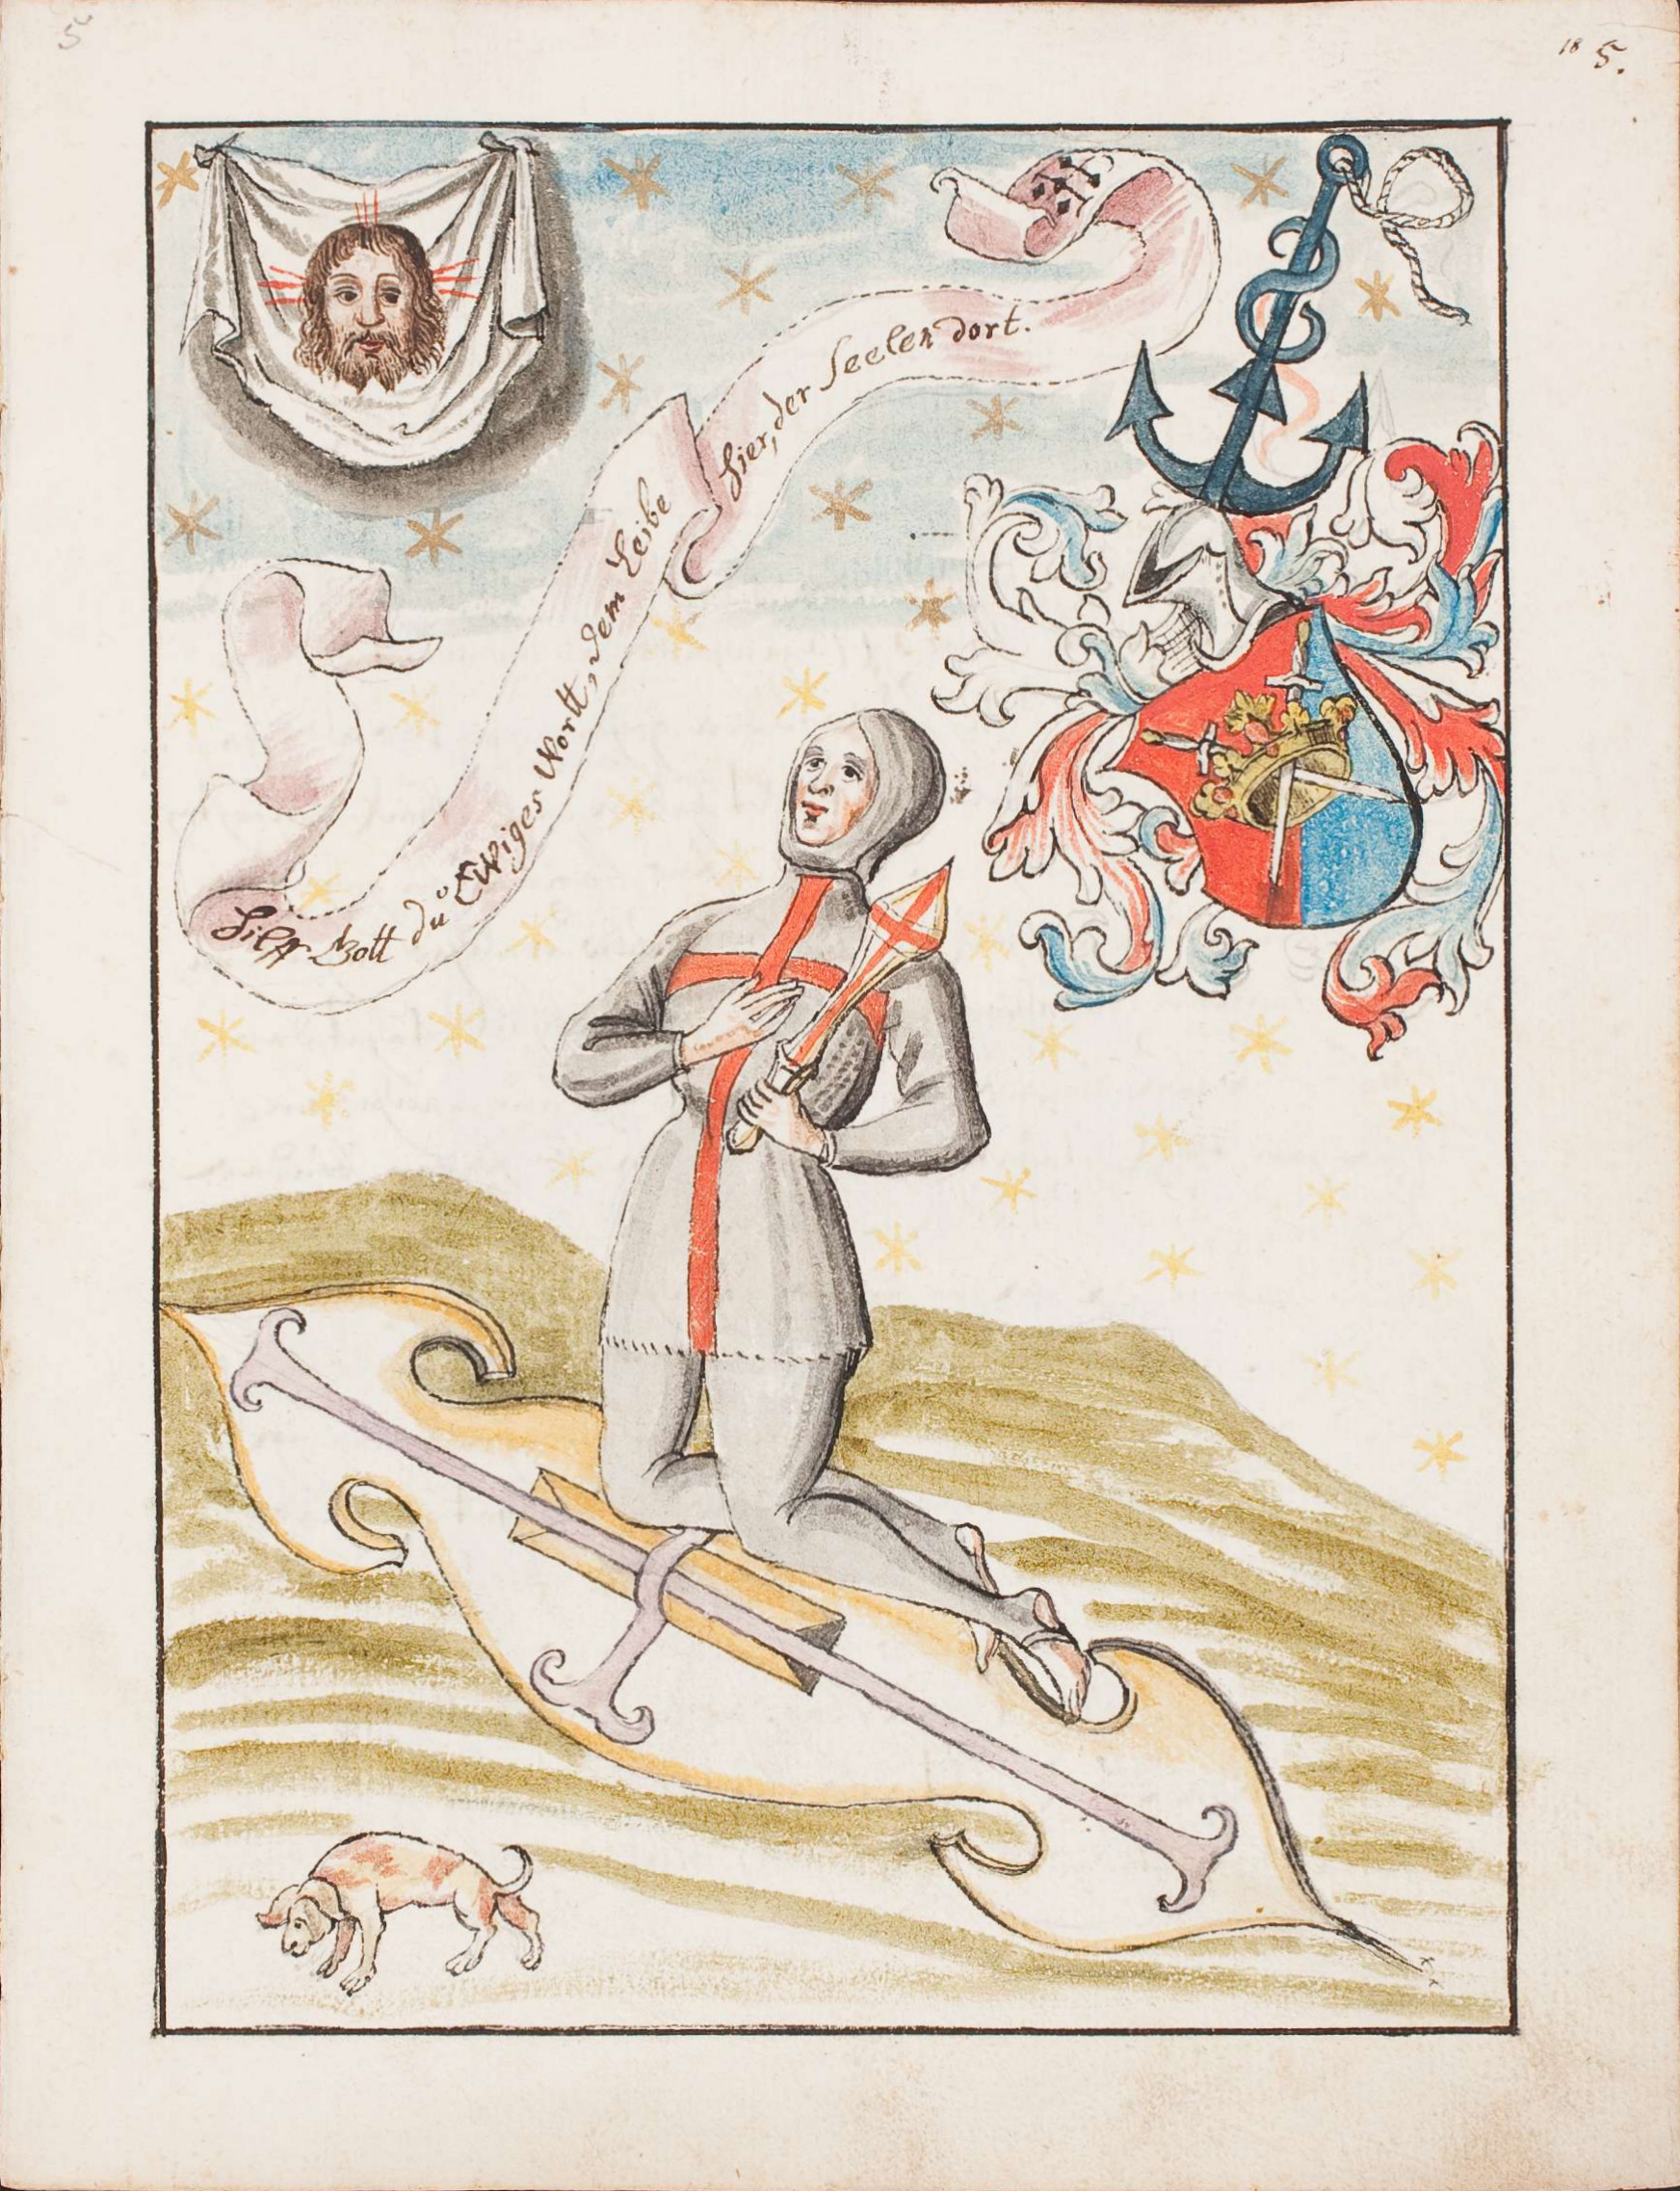 5
18 5.
Hilff Gott dů Ewiges Wortt, dem Leibe
hier, der Seelen dort.